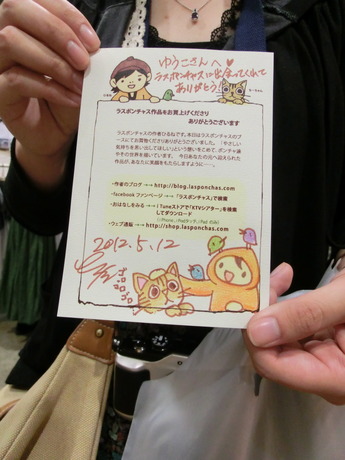 ゆうこさんへ♥
ラスポンチャスに出会ってくれて
ありがとう!
ラスポンチャス作品をお買上げくださり
ありがとうございます
ラスポンチャスの作者ひるねです。本日はラスポンチャスのブ
ースにてお買物くださりありがとうございました。「やさしい
気持ちを思い出してほしい」という想いをこめて、ポンチャ達
やその世界を描いています。 今日あなたの元へ迎えられた
作品が、あなたに笑顔をもたらしますように……。
・作者のブログ →→ http://blog.lasponchas.com
・facebook ファンページ →→「ラスポンチャス」で検索
・おはなしをみる →→ iTuneストアで「KTVシアター」を検索
してダウンロード
・ウェブ通販 →→ http://shop.lasponchas.com
2012.5.12
ゴロゴロ